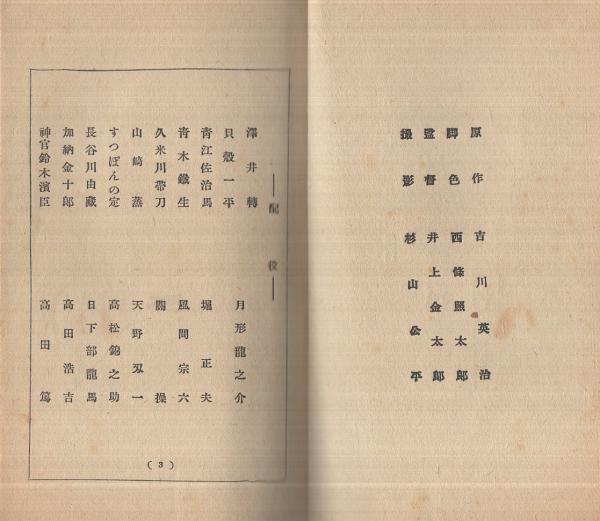 原作 吉川英治
脚色 西條照太郎
監督 井上金太郎
撮影 杉山公平
―配役―
澤井轉 月形龍之介
貝殻一平
青江佐治馬 堀正夫
青木鐵生 風間宗六
久米川帶刀 關操
山崎蒸 天野刄一
すつぽんの定 高松錦之助
長谷川由藏 日下部龍馬
加納金十郎 高田浩吉
神官鈴木濱臣 高田篤
(3)